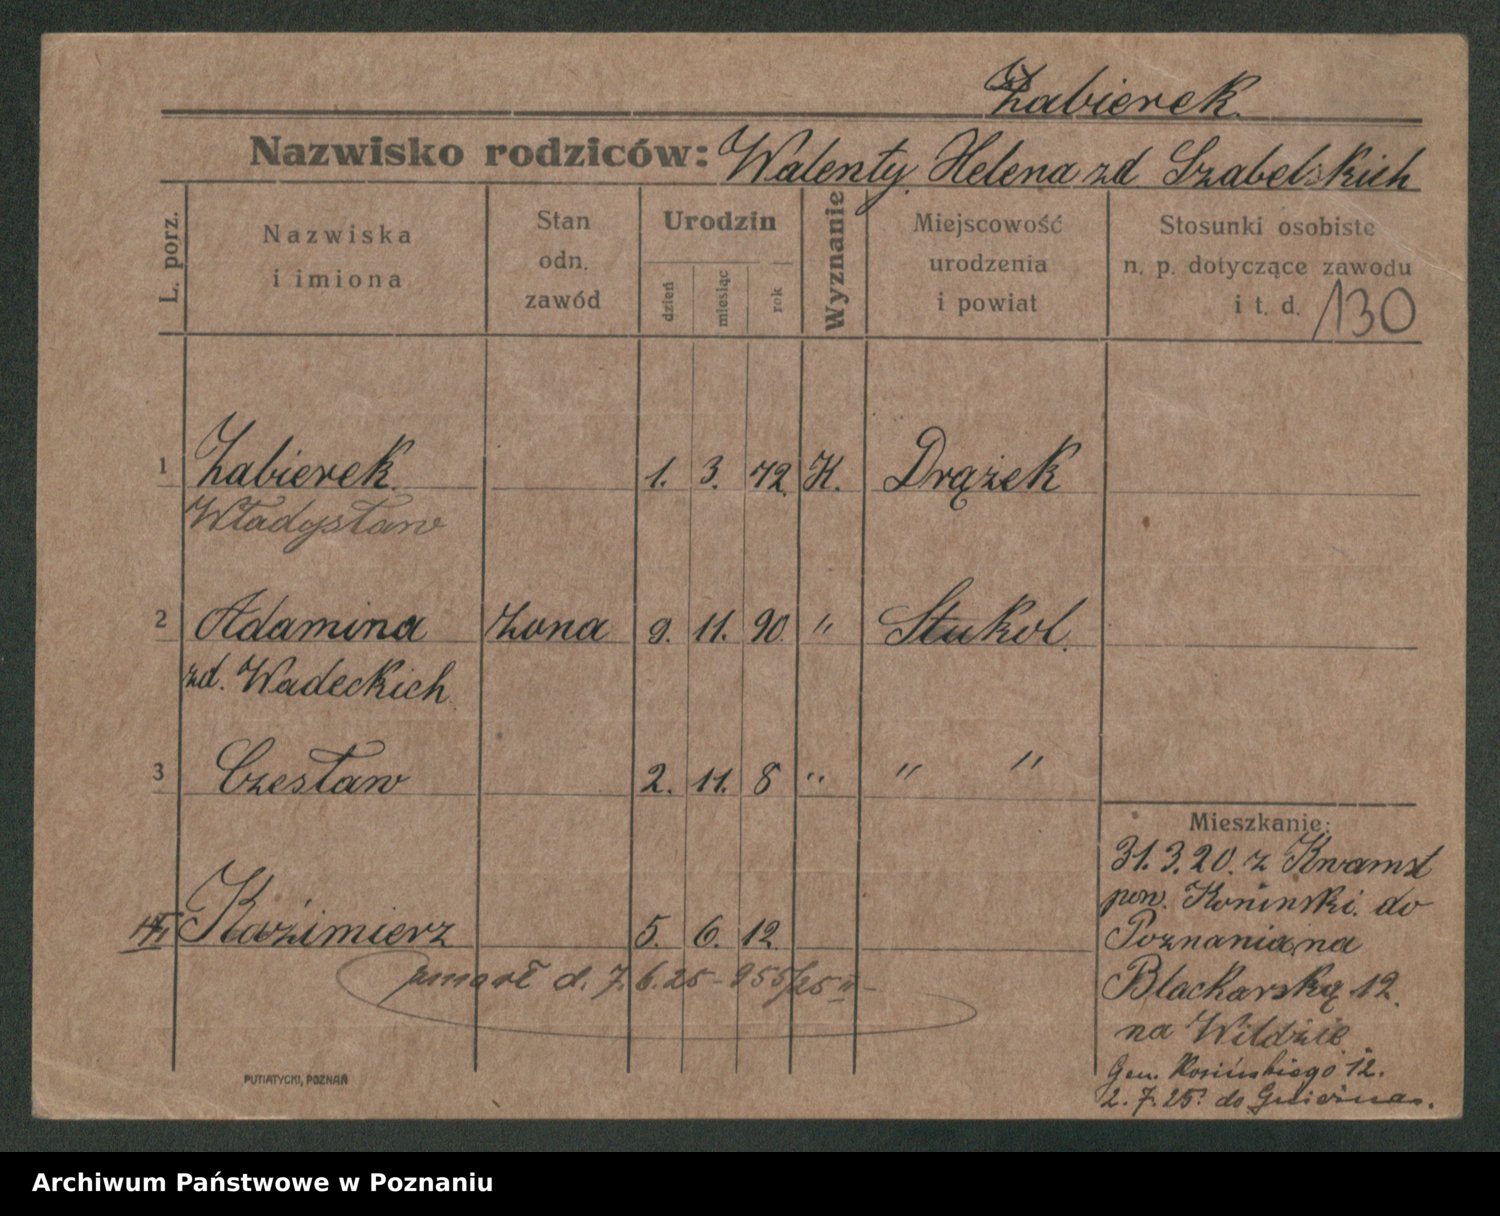 Żabierek.
Nazwisko rodziców: Walenty, Helena zd. Szabelskich
L. porz.
Nazwiska
i imiona
Stan
odn.
zawód
Urodzin
dzień
miesiąc
rok
Wyznanie
Miejscowość
urodzenia
i powiat
Stosunki osobiste
n. p. dotyczące zawodu
i t. d. /130
1 Żabierek. 1. 3. 72. K. Drążek
Władysław
2 Adamina żona 9. 11. 90. " Stukol.
zd. Wadeckich
3 Czesław 2. 11. 8 " " "
Kaźimierz 5. 6. 12.
zmarł d. 7. 6. 25 - 955/25 II -
Mieszkanie:
31. 3. 20. z
pow. Koninski. do
Poznania, na
Blackarską 12.
na Wildzie.
Gen. Kosińskiego 12.
2. 7. 25. do
PUTIATYCKI, POZNAŃ
Archiwum Państwowe w Poznaniu